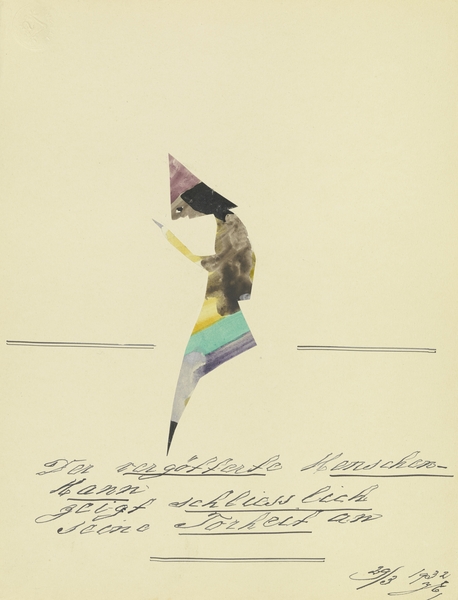 Der vergötterte Menschen-
Mann
zeigt schliesslich
seine Torheit an
29/3 1932